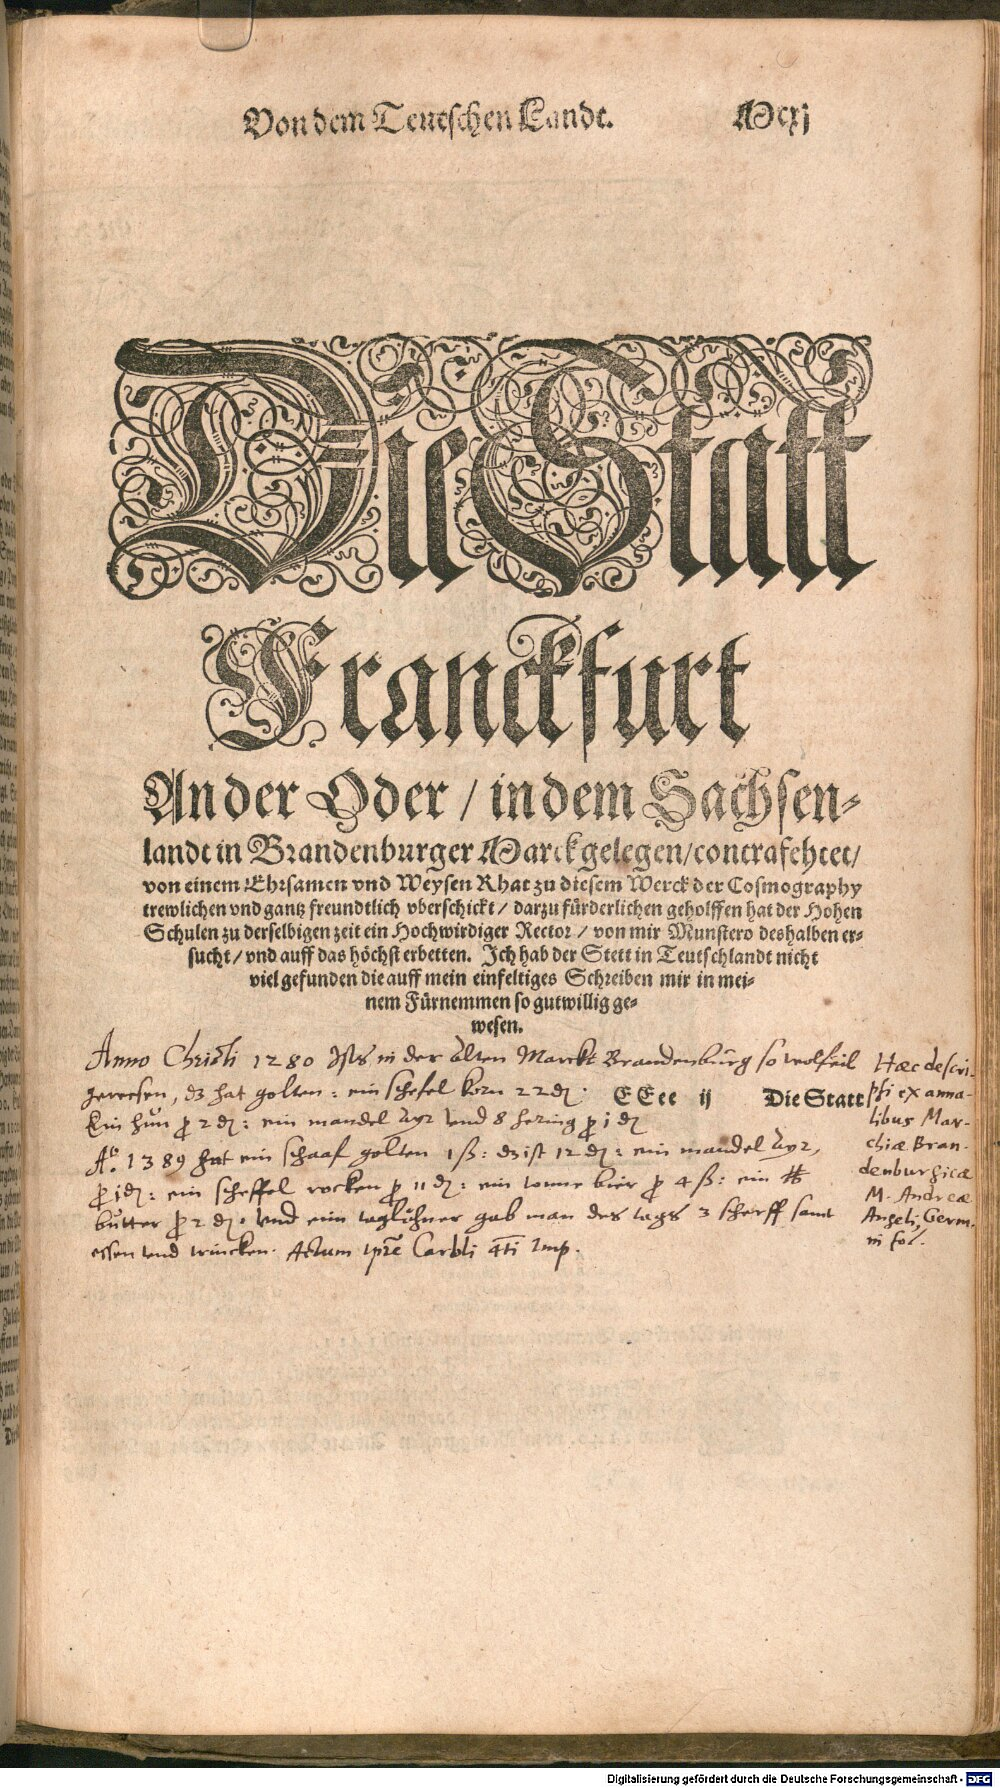 Von dem Teutschen Landt. Mcxj
Die Statt
Franckfurt
An der Oder / in dem Sachsen-
landt in Brandenburger Marck gelegen / contrafehtet /
von einem Ehrsamen vnd Weysen Rhat zu diesem Werck der Cosmography
trewlichen vnd gantz freundtlich vberschickt / darzu fürderlichen geholffen hat der Hohen
Schulen zu derselbigen zeit ein Hochwirdiger Rector / von mir Munstero deshalben er-
sucht / vnd auff das höchst erbetten. Ich hab der Stett in Teutschlandt nicht
viel gefunden die auff mein einfeltiges Schreiben mir in mei-
nem Fürnemmen so gutwillig ge-
wesen.
Anno Christi 1280 Ists in der alten Marckt Brandenburg so wolfeil
gewesen, dz hat golten: ein schefel korn 22 d:
EEee ij Die Statt
Ein hun p 2 d: ein mandel ayr vnd 8 hering p j d
Aº. 1389 hat ein schaaf golten 1 ß: dz ist 12 d: ein mandel ayr,
p j d: ein scheffel rocken p 11 d: ein tonne bier p 4 ß: ein ℔
butter p 2 d. vnd eim taglöhner gab man des tags 3 scherff samt
essen vnd trincken. Actum tpre Caroli 4ti Imp.
Hæc descri-
psi ex anna-
libus Mar-
chiæ Bran-
denburgicæ
M. Andreæ
Angeli, Germ.
in fol.
Digitalisierung gefördert durch die Deutsche Forschungsgemeinschaft - DFG